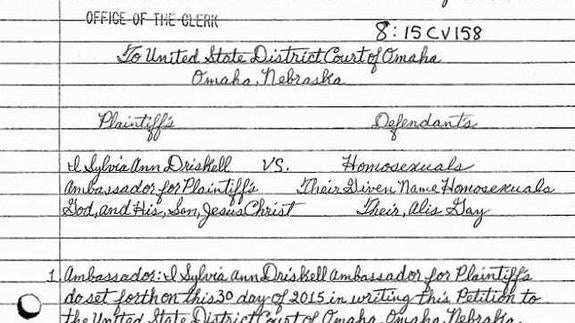 OFFICE OF THE CLERK
8:15CV158
To United State District Court of Omaha
Omaha, Nebraska
Plaintiff's Defendant's
I Sylvia Ann Driskell VS. Homosexuals
Ambassador for Plaintiff's Their Given Name Homosexuals
God, and His, Son, Jesus Christ Their, Alis Gay
1. Ambassador: I Sylvia Ann Driskell Ambassador for Plaintiff's
do set forth on this 30 day of 2015 in writing this Petition to
the United State District Court of Omaha, Omaha, Nebraska.